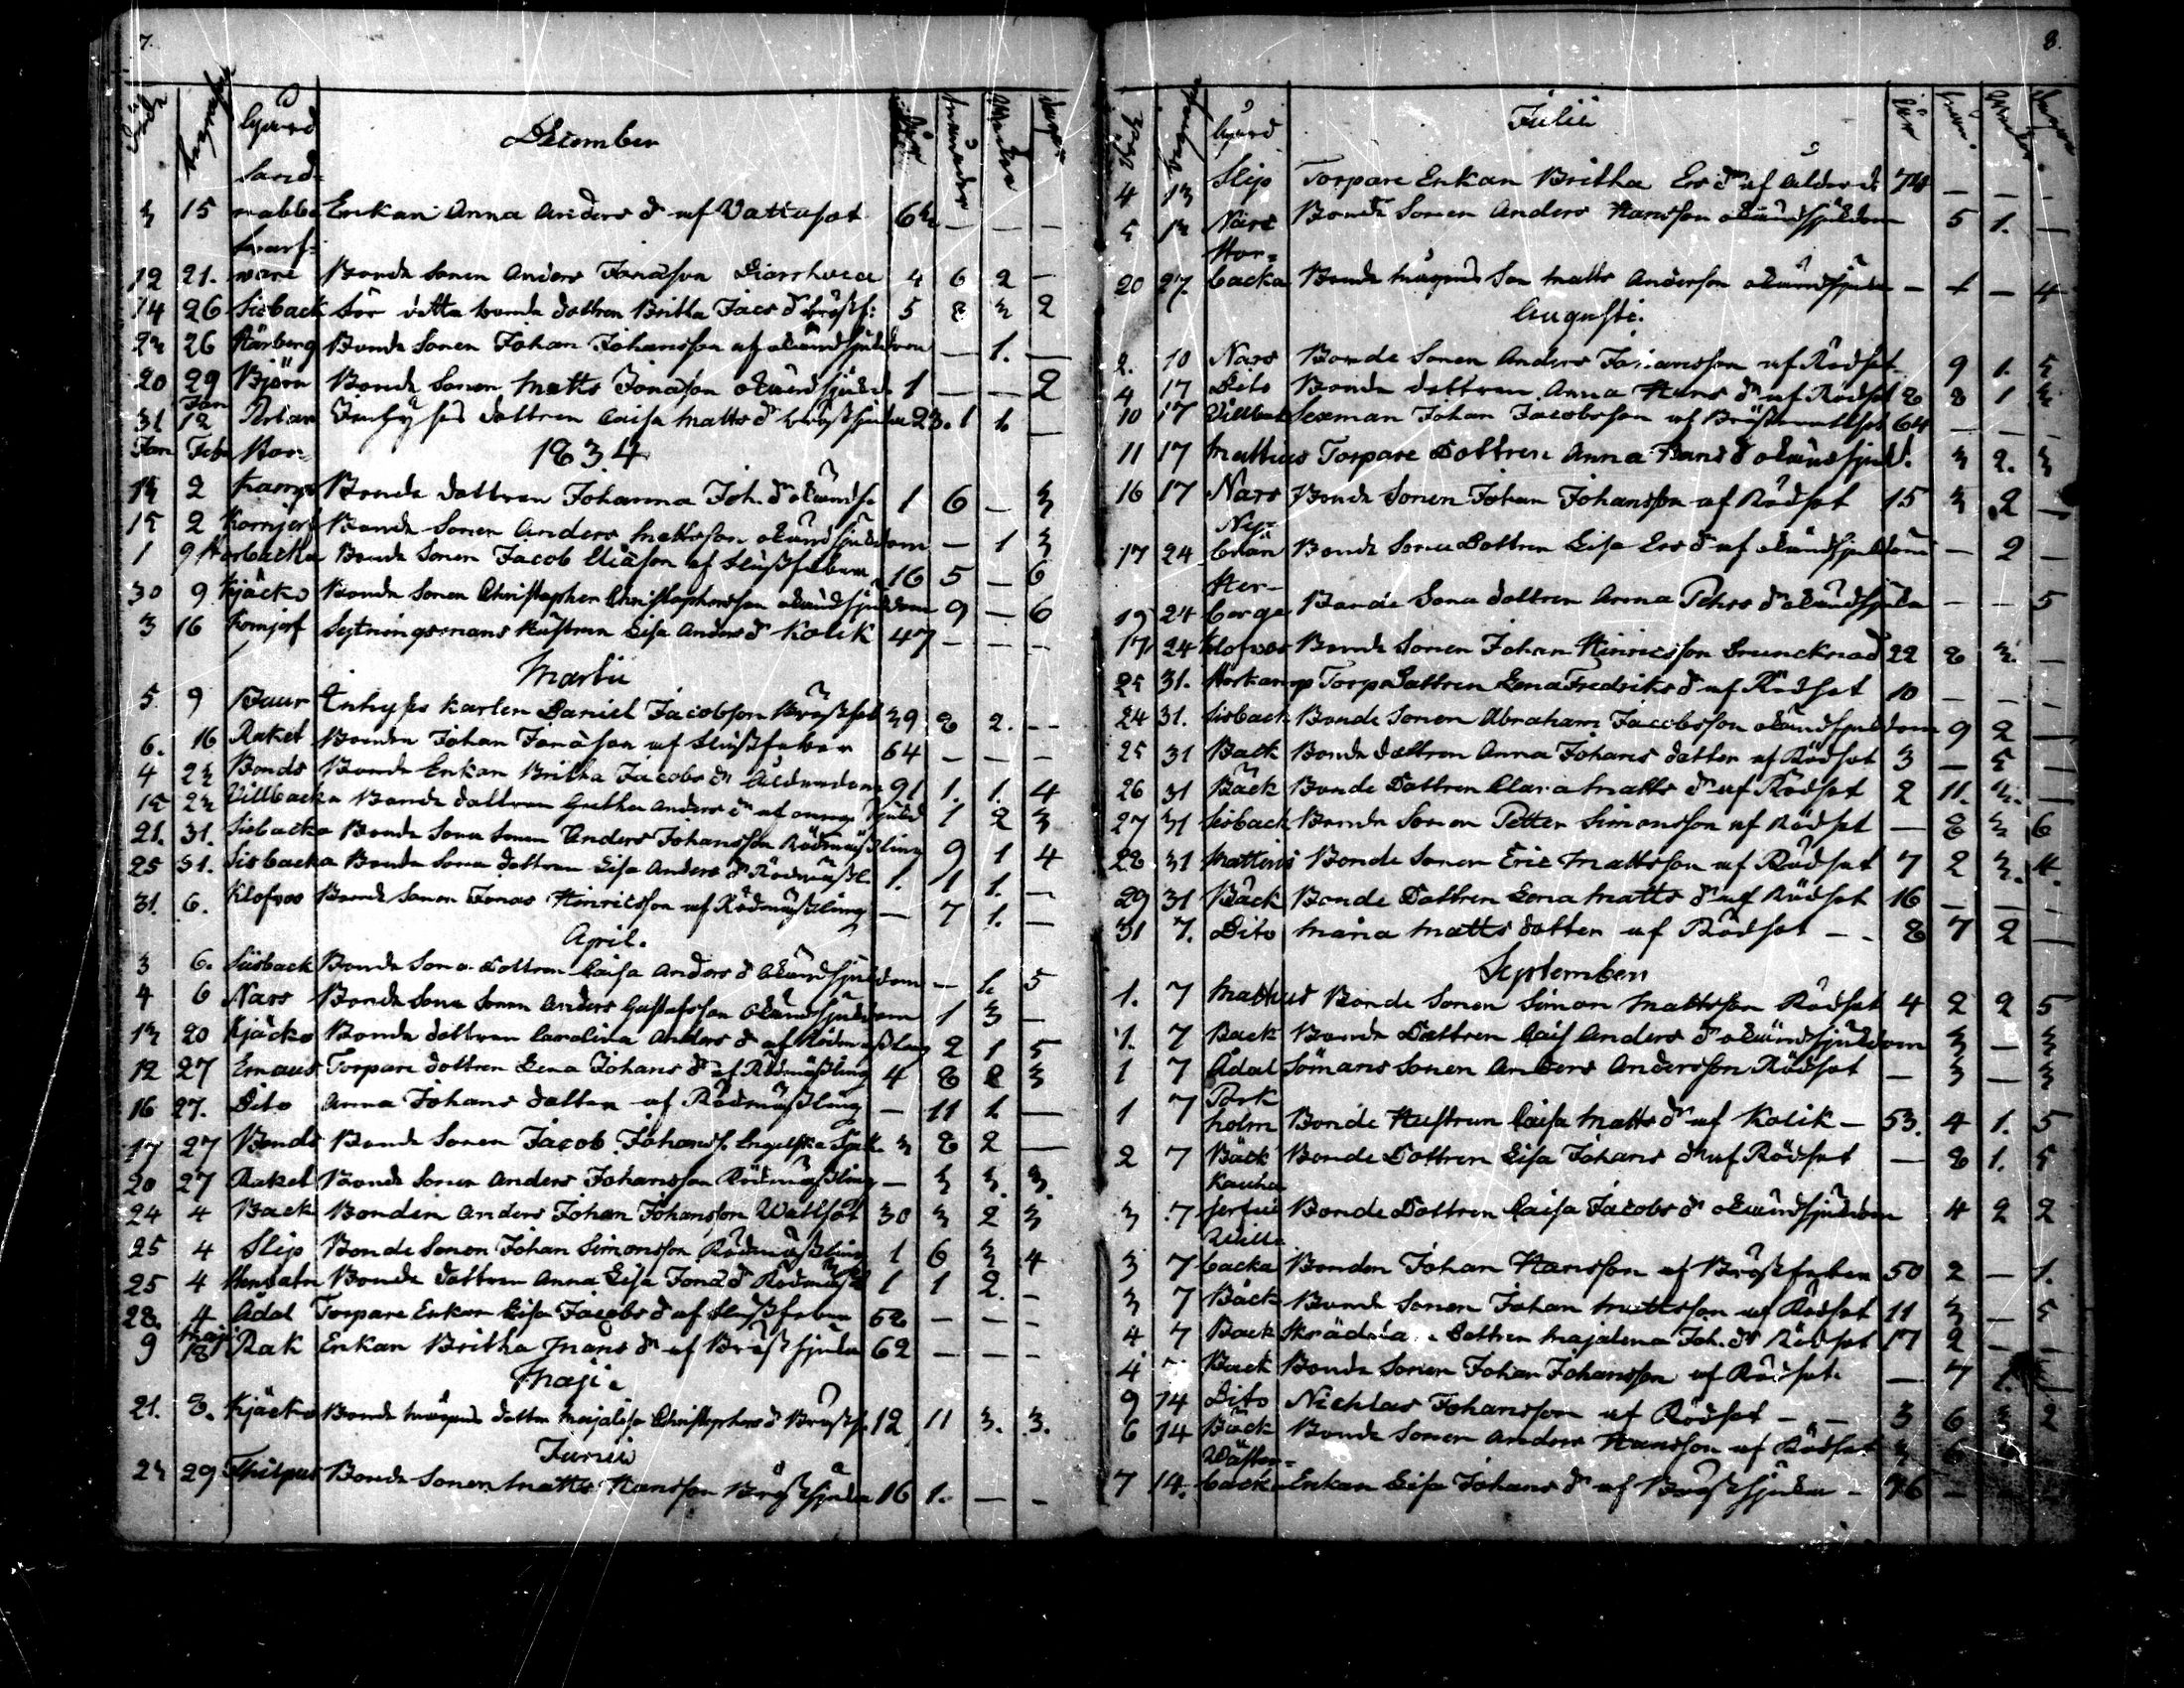 7.
Döde Begrafne Gård December År Månader Wekor Dagar
Sand=
3 15 nabba Enkan Anna Anders dr af Vattusot 63 — — —
Snarf=
12 21. ware Bonde Sonen Anders Jonasson Diarrhoea 4 6 2 —
14 26 Sisback bonde dottren Britha Jacs dr bröstf: 5 8 3 2
23 26 Kärberg Bonde Sonen Johan Johansson af okänd sjukdom — 1. —
20 29 Björn Bonde Sonen Matts Jonasson okänd sjukd. 1 — — 2
Jan
31 12 Inhyses dottren Caisa Matts dr bröstsjuka 23. 1 1 —
Jan Feb Stor= 1834
13 2 kamp Bonde dottren Johanna Joh. dr okänd s. 1 6 — 3
15 2 Kornjerf Bonde Sonen Anders Mattsson okänd sjukdom — 1 3
1 9 Storbacka Bonde Sonen Jacob Eliasson af Flussfeber 16 5 — 6
30 9 Kjäcko Bonde Sonen Christopher Christophersson okänd sjukdom 9 — 6
3 16 Kornjerf Sytningsmans Hustrun Lisa Anders dr Kolik 47 — — —
Martii
5 9 Buur Inhyses Karlen Daniel Jacobsson Bröstsot 39 8 2. —
6. 16 Raket Bonden Johan Jonasson af Flussfeber 64 — — —
4 23 Bonds Bonde Enkan Britha Jacobs dr Ålderdom 91 1. 1. 4
15 23 Villbacka Bonde dottren Gretha Anders dr af sjukd 1 2 3
21. 31. Sisbacka Bonde Sona Sonen Anders Johansson Rödmässling 9 1 4
25 31. Sisbacka Bonde Sona dottren Lisa Anders dr Rödmässl. 1. 1 1. —
31. 6. Klofvos Bonde Sonen Jonas Hinricsson af Rödmässling — 7 1. —
April.
3 6. Siisback Bonde Sona Dottren Caisa Anders dr okänd sjukdom — 1. 5
4 6 Nars Bonde Sona Sonen Anders Gustafsson okänd sjukdom 1 3 —
13 20 Kjäcko Bonde dottren Carolina Anders dr af Rödmässling 2 1 5
12 27 Ernaus Torpare dottren Lena Johans dr af Rödmässling 4 8 2 3
16 27. Dito Anna Johans dotter af Rödmässling — 11 1 —
17 27 Bonds Bonde Sonen Jacob Johanss. Engelska Sjuk. 3 8 2 —
20 27 Raket Bonde Sonen Anders Johansson Rödmässling — 3 3. 3.
24 4 Back Bonden Anders Johan Johansson Wattsot 30 3 2 3
25 4 Slip Bonde Sonen Johan Simonsson Rödmässling 1 6 3 4
25 4 Bonde dottren Anna Lisa Jonas dr Rödmässl 1 1 2. —
28. 4 Ådal Torpare Enkan Lisa Jacobs dr af Flussfeber 52 — — —
Maji
9 18 Rak Enkan Britha Mans dr af Bröstsjuka 62 — — —
Maji
21. 8. Kjäcko Bonde Mågens dotter Majalisa Christophers dr Bröstsj. 12 11 3. 3.
Junii
23 29 Thilpus Bonde Sonen Matts Hansson Bröstsjuka 16 1. — —
8.
Döde Begrafne Gård Julii År Mån. Wekor Dagar
4 13 Slip Torpare Enkan Britha Ers dr af Ålderd. 74 — — —
5 13 Nars Bonde Sonen Anders Hansson okänd sjukdom 5 1. —
Stor=
20 27. backa Bonde Mågens Son Matts Andersson okänd sjukd — 1 — 4
Augusti.
2. 10 Nars Bonde Sonen Anders Johansson af Rödsot 9 1. 5
4 17 Dito Bonde dottren Anna Hans dr af Rödsot 2 8 1 3
10 17 Villback Sexman Johan Jacobsson af Bröst 64 — — —
11 17 Mattius Torpare Dottren Anna Hans dr okänd sjukd. 3 2. 3
16 17 Nars Bonde Sonen Johan Johansson af Rödsot 15 3 2 —
Ny=
17 24 brän Bonde Sona Dottren Lisa Ers dr af okänd sjukdom — 2 —
Ster-
19 24 berge Bonde Sona dottren Anna Pehrs dr okänd sjuka — — 5
17 24 Klofvos Bonde Sonen Johan Hinricsson Druncknad 22 8 3. —
25 31. Storkamp Torp Dottren Lena Fredriks dr af Rödsot 10 — — —
24 31. Sisback Bonde Sonen Abraham Jacobsson okänd sjukdom 9 2 —
25 31 Back Bonde dottren Anna Johans dotter af Rödsot 3 — 5 —
26 31 Bäck Bonde Dottren Clara Matts dr af Rödsot 2 11. 3. —
27 31 Sisback Bonde Sonen Petter Simonsson af Rödsot — 8 3 6
28 31 Mattius Bonde Sonen Eric Mattsson af Rödsot 7 2 3. 4.
29 31 Bäck Bonde Dottren Lena Matts dr af Rödsot 16 — — —
31 7. Dito Maria Matts dotter af Rödsot — 8 7 2 —
September
1. 7 Mattius Bonde Sonen Simon Mattsson Rödsot 4 2 2 5
1. 7 Back Bonde Dottren Cais Anders dr okänd sjukdom 3 — 3
1 7 Ådal Sömans Sonen Anders Andersson Rödsot — 3 — 3
1 7 Pork
holm Bonde Hustrun Caisa Matts dr af Kolik — 53. 4 1. 5
2 7 Bäck Bonde Dottren Lisa Johans dr af Rödsot — 8 1. 5
Kauha
3 7 jerfvi Bonde Dottren Caisa Jacobs dr okänd sjukdom 4 2 2
Wille
3 7 backa Bonden Johan Hansson af Bröstfeber 50 2 — 1.
3 7 Bäck Bonde Sonen Johan Mattsson af Rödsot 11 3 — 5
4 7 Back Dottren Majalena Joh. dr Rödsot 17 2 — —
4 7 Back Bonde Sonen Johan Johansson af Rödsot. — 7 1.
9 14 Dito Nichlas Johansson af Rödsot — 3 6 3 2
6 14 Bäck Bonde Sonen Anders Hansson af Rödsot 3 6
Wäster=
7 14. backa Enkan Lisa Johans dr af Bröstsjuka — 76 —